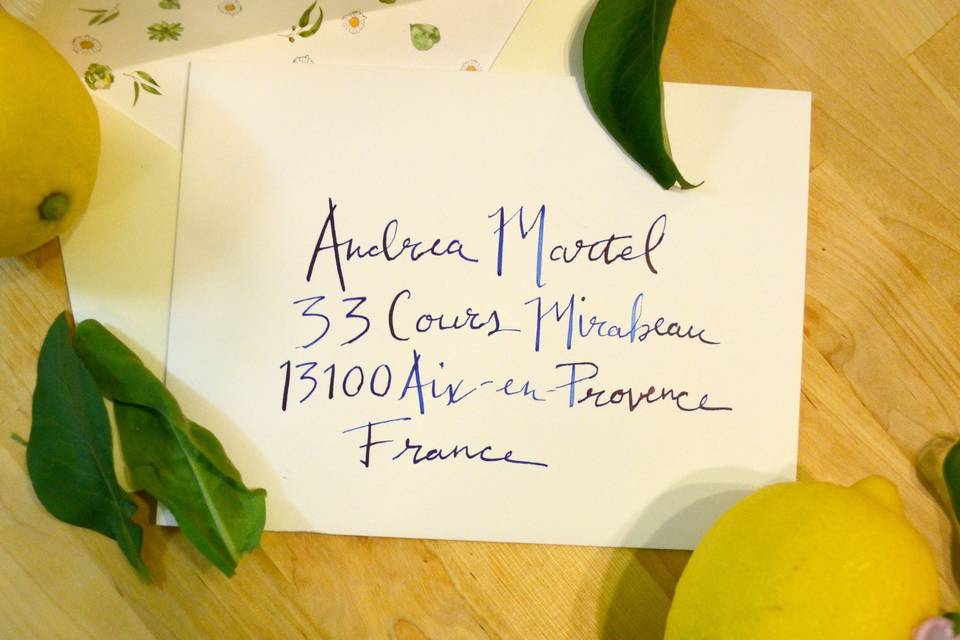 Andrea Martel
33 Cours Mirabeau
13100 Aix-en-Provence
France